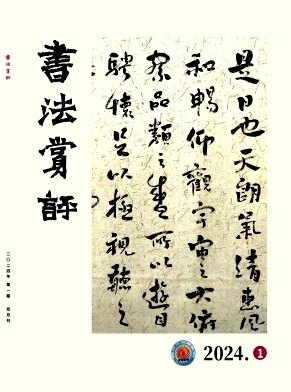 書法賞評
書法賞評
二〇二四年 第一期 双月刊
是日也天朗氣清惠風
和暢仰觀宇宙之大俯
察品類之盛所以遊目
騁懷足以極視聽之
2024.1